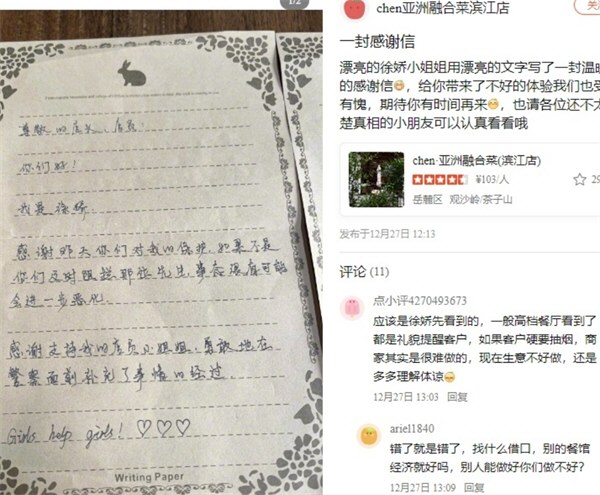 1/2
尊敬的店长、店员:
你们好!
我是徐娇
感谢昨天你们对我的保护,如果不是
你们及时阻拦那位先生,事态很有可能
会进一步恶化
感谢支持我的店员小姐姐,勇敢地在
警察面前补充了事情的经过
Girls help girls! ♡♡♡
Writing Paper
chen亚洲融合菜滨江店
一封感谢信
漂亮的徐娇小姐姐用漂亮的文字写了一封温暖
的感谢信😁,给你带来了不好的体验我们也受
有愧,期待你有时间再来😁,也请各位还不太
楚真相的小朋友可以认真看看哦
chen·亚洲融合菜(滨江店)
¥103/人
岳麓区 观沙岭/茶子山
29
发布于12月27日 12:13
评论 (11)
点小评4270493673
应该是徐娇先看到的,一般高档餐厅看到了
都是礼貌提醒客户,如果客户硬要抽烟,商
家其实是很难做的,现在生意不好做,还是
多多理解体谅😁
12月27日 13:03 回复
ariel1840
错了就是错了,找什么借口,别的餐馆
经济就好吗,别人能做好你们做不好?
12月27日 13:09 回复